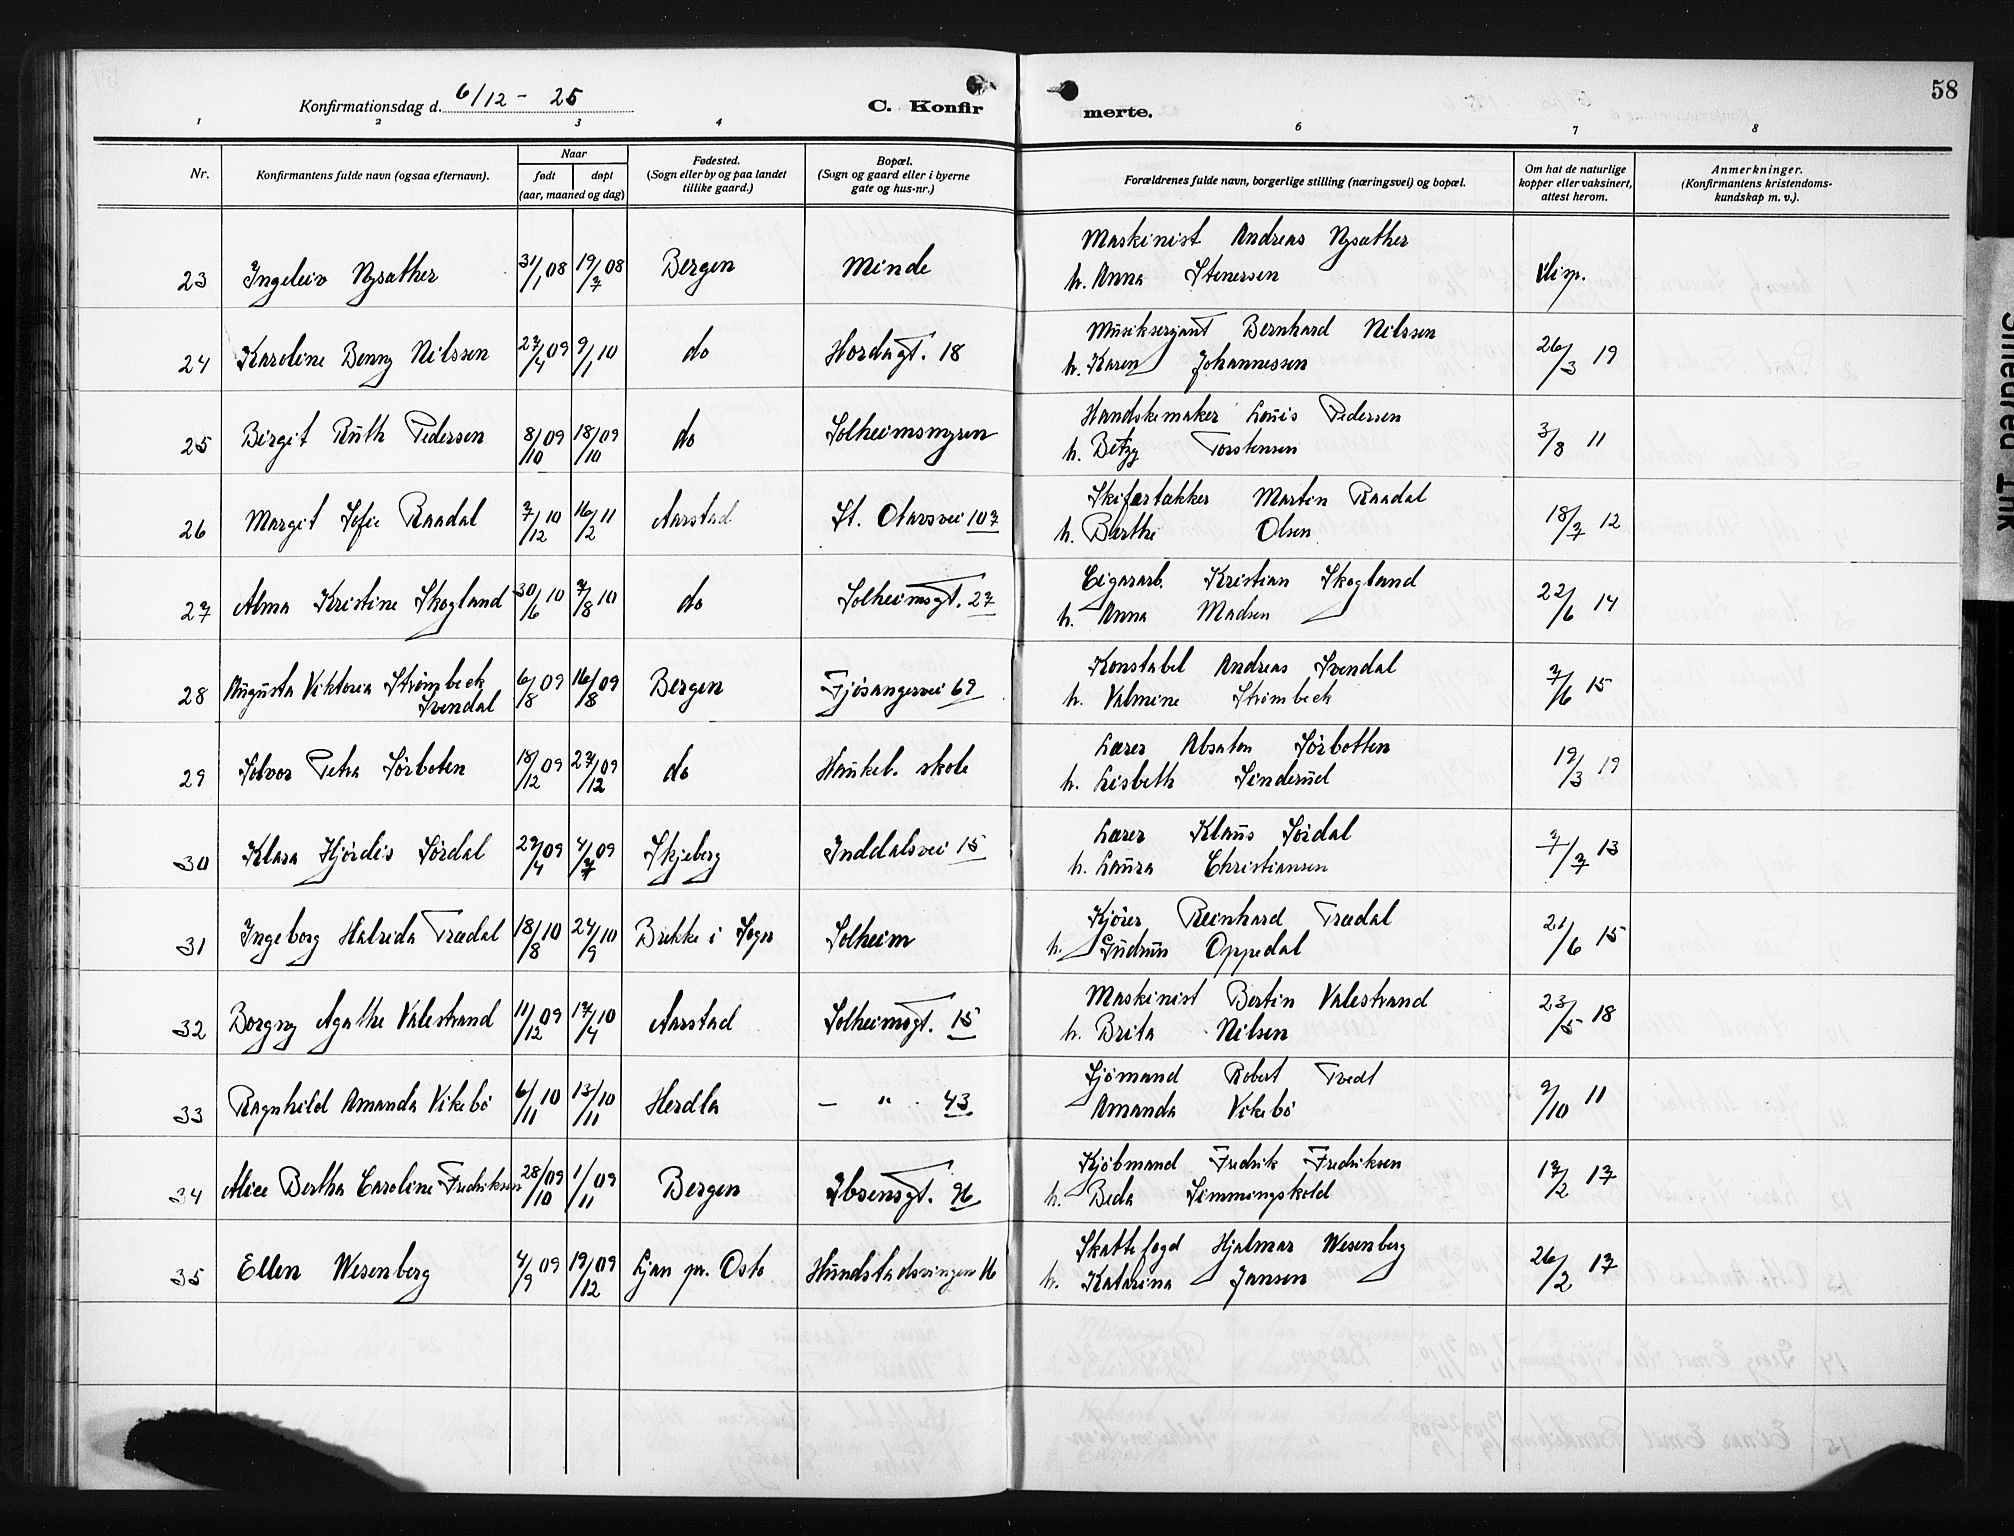 58
Konfirmationsdag d. 6/12 - 25
C. Konfir merte.
1 2 3 4 5 6 7 8
Nr. Konfirmantens fulde navn (ogsaa efternavn). Naar født døpt (aar, maaned og dag) Fødested. (Sogn eller by og paa landet tillike gaard.) Bopæl. (Sogn og gaard eller i byerne gate og hus-nr.) Forældrenes fulde navn, borgerlige stilling (næringsvei) og bopæl. Om hat de naturlige kopper eller vaksinert, attest herom. Anmerkninger. (Konfirmantens kristendomskundskap m. v.).
Maskinist Andreas Nysæther
23 Ingeleiv Nysæther 31/1 08 19/7 08 Bergen Minde h. Anna Stenersen
Musikserjant Bernhard Nilssen
24 Karoline Benny Nilssen 27/4 09 9/1 10 do Hordagt. 18 h. Karen Johannessen 26/3 19
Handskemaker Louis Pedersen
25 Birgit Ruth Pedersen 8/10 09 18/10 09 do Solheimsmyren h. Betzy Torstensen 3/8 11
Skifertækker Martin Raadal
26 Margit Sofie Raadal 7/12 10 16/2 11 Aarstad St. Olavsvei 107 h. Barthe Olsen 18/7 12
Cigararb. Kristian Skogland
27 Alma Kristine Skogland 30/6 10 7/8 10 do Solheimsgt. 27 h. Anna Madsen 22/6 14
Konstabel Andreas Svendal
28 Augusta Viktoria Strømbeck Svendal 6/8 09 16/8 09 Bergen Fjøsangervei 69 h. Valmine Strømbeck 7/6 15
Lærer Absalon Sørbotten
29 Solvor Petra Sørboten 18/12 09 27/12 09 do Haukel. skole h. Lisbeth Sinderud 19/3 19
Lærer Klaus Sørdal
30 Klara Hjørdis Sørdal 27/4 09 4/7 09 Skjeberg Inddalsvei 15 h. Laura Christiansen 7/7 13
Kjører Reinhard Trædal
31 Ingeborg Halrida Trædal 18/8 10 24/9 10 Brekke i Sogn Solheim h. Gudrun Oppedal 21/6 15
Maskinist Bertin Valestrand
32 Borgny Agathe Valestrand 11/12 09 17/4 10 Aarstad Solheimsgt. 15 h. Brita Nilsen 23/5 18
Sjømand Robert Tvedt
33 Ragnhild Amanda Vikebø 6/11 10 13/11 10 Herdla — " 43 Amanda Vikebø 9/10 11
Kjøbmand Fredrik Fredriksen
34 Alice Bertha Caroline Fredriksen 28/10 09 1/11 09 Bergen Ibsensgt. 96 h. Beda Simmingskold 17/2 17
Skattefogd Hjalmar Wesenberg
35 Ellen Wesenberg 4/9 09 19/12 09 Ljan pr. Oslo Hundstadsvingen 16 h. Katarina Jansen 26/2 17